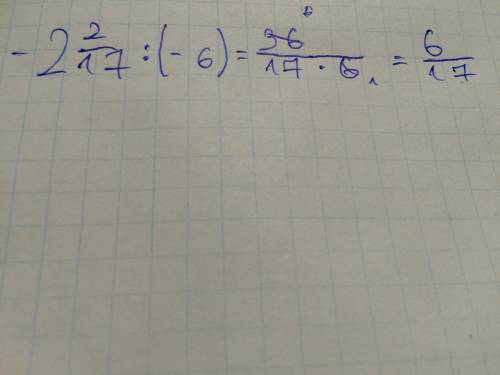 -2 2/17 : (-6) = 36 6/17 · 6 1 = 6/17